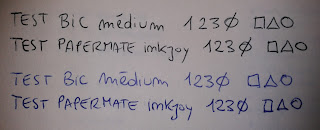 TEST BIC médium 123Ø □△○
TEST PAPERMATE imkjoy 123Ø □△○
TEST BIC médium 123Ø □△○
TEST PAPERMATE imkjoy 123Ø □△○